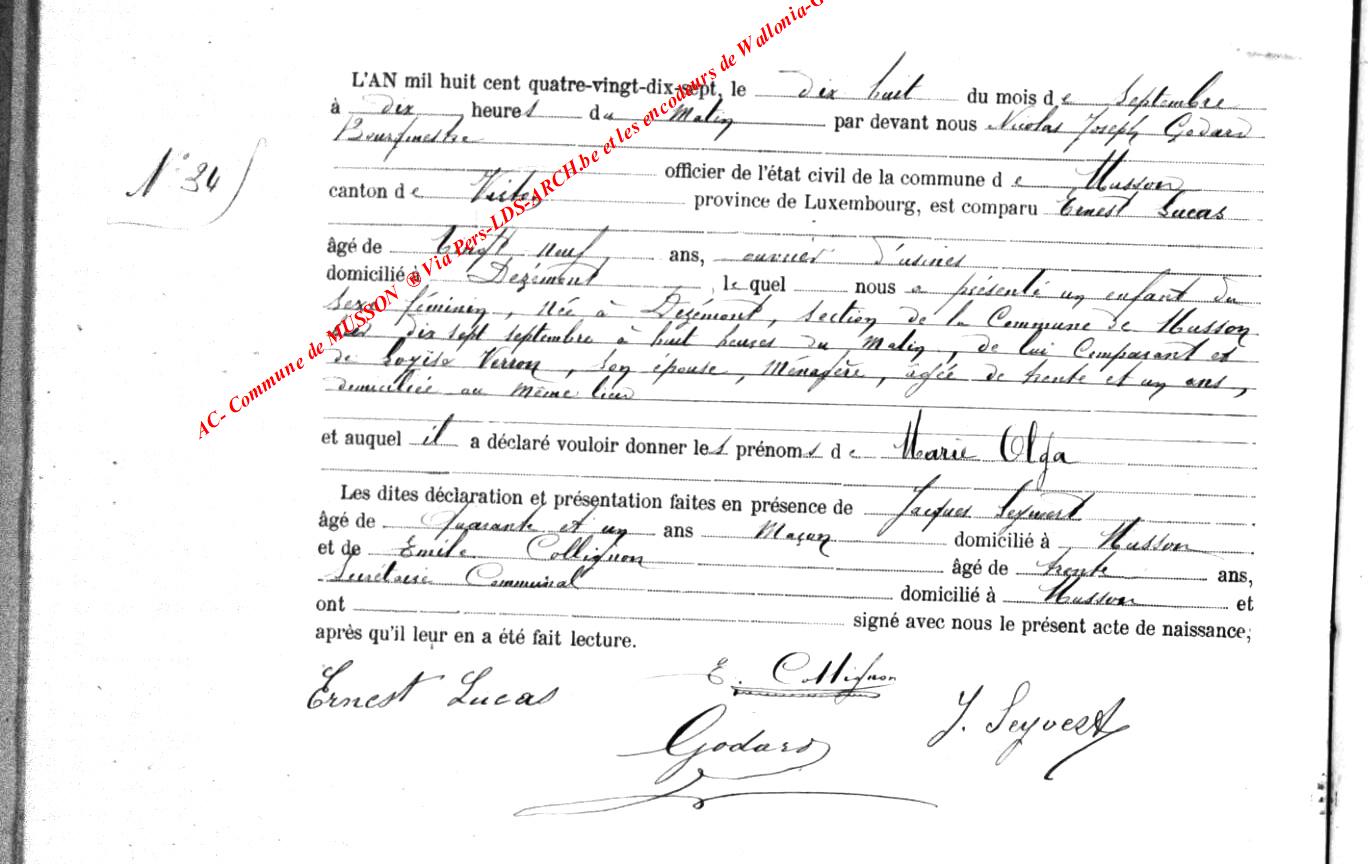 L'AN mil huit cent quatre-vingt-dix-sept, le dix huit du mois de Septembre
à dix heures du Matin par devant nous Nicolas Joseph Godard
Bourgmestre
N° 34
officier de l'état civil de la commune de Musson
canton de Virton province de Luxembourg, est comparu Ernest Lucas
âgé de vingt neuf ans, ouvrier d'usines
domicilié à Dezémont, lequel nous a présenté un enfant du
Sexe féminin, née à Dezémont, section de la Commune de Musson
dix sept septembre à huit heures du Matin, de lui Comparant et
de Loyise Verron, son épouse, Ménagère, âgée de trente et un ans,
domiciliée au même lieu
et auquel il a déclaré vouloir donner les prénoms de Marie Olga
Les dites déclaration et présentation faites en présence de Jacques Seyvert
âgé de Quarante et un ans Maçon domicilié à Musson
et de Emile Collignon âgé de trente ans,
Secrétaire Communal domicilié à Musson et
ont signé avec nous le présent acte de naissance,
après qu'il leur en a été fait lecture.
Ernest Lucas E. Collignon J. Seyvert
Godard
AC- Commune de MUSSON ® Via Pers-LDS-ARCH.be et les encodeurs de Wallonia-G